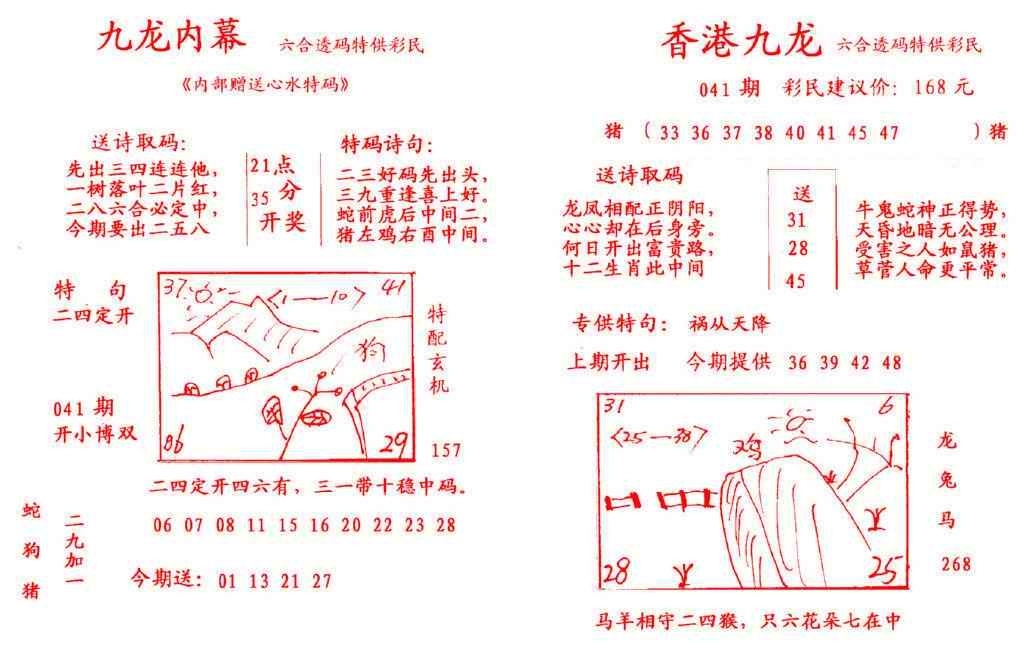 九龙内幕 六合透码特供彩民
《内部赠送心水特码》
送诗取码：
先出三四连连他，
一树落叶二片红，
二八六合必定中，
今期要出二五八
21点
35分
开奖
特码诗句：
二三好码先出头，
三九重逢喜上好。
蛇前虎后中间二，
猪左鸡右酉中间。
特 句
二四定开
041 期
开小博双
37
〈1—10〉
41
狗
06
29
特配玄机
157
二四定开四六有，三一带十稳中码。
蛇
狗
猪
二九加一
06 07 08 11 15 16 20 22 23 28
今期送：01 13 21 27
香港九龙 六合透码特供彩民
041 期 彩民建议价：168 元
猪（33 36 37 38 40 41 45 47 ）猪
送诗取码
龙凤相配正阴阳，
心心却在后身旁。
何日开出富贵路，
十二生肖此中间
送
31
28
45
牛鬼蛇神正得势，
天昏地暗无公理。
受害之人如鼠猪，
草菅人命更平常。
专供特句： 祸从天降
上期开出 今期提供 36 39 42 48
31
6
〈25—38〉
鸡
28
25
龙
兔
马
268
马羊相守二四猴，只六花朵七在中